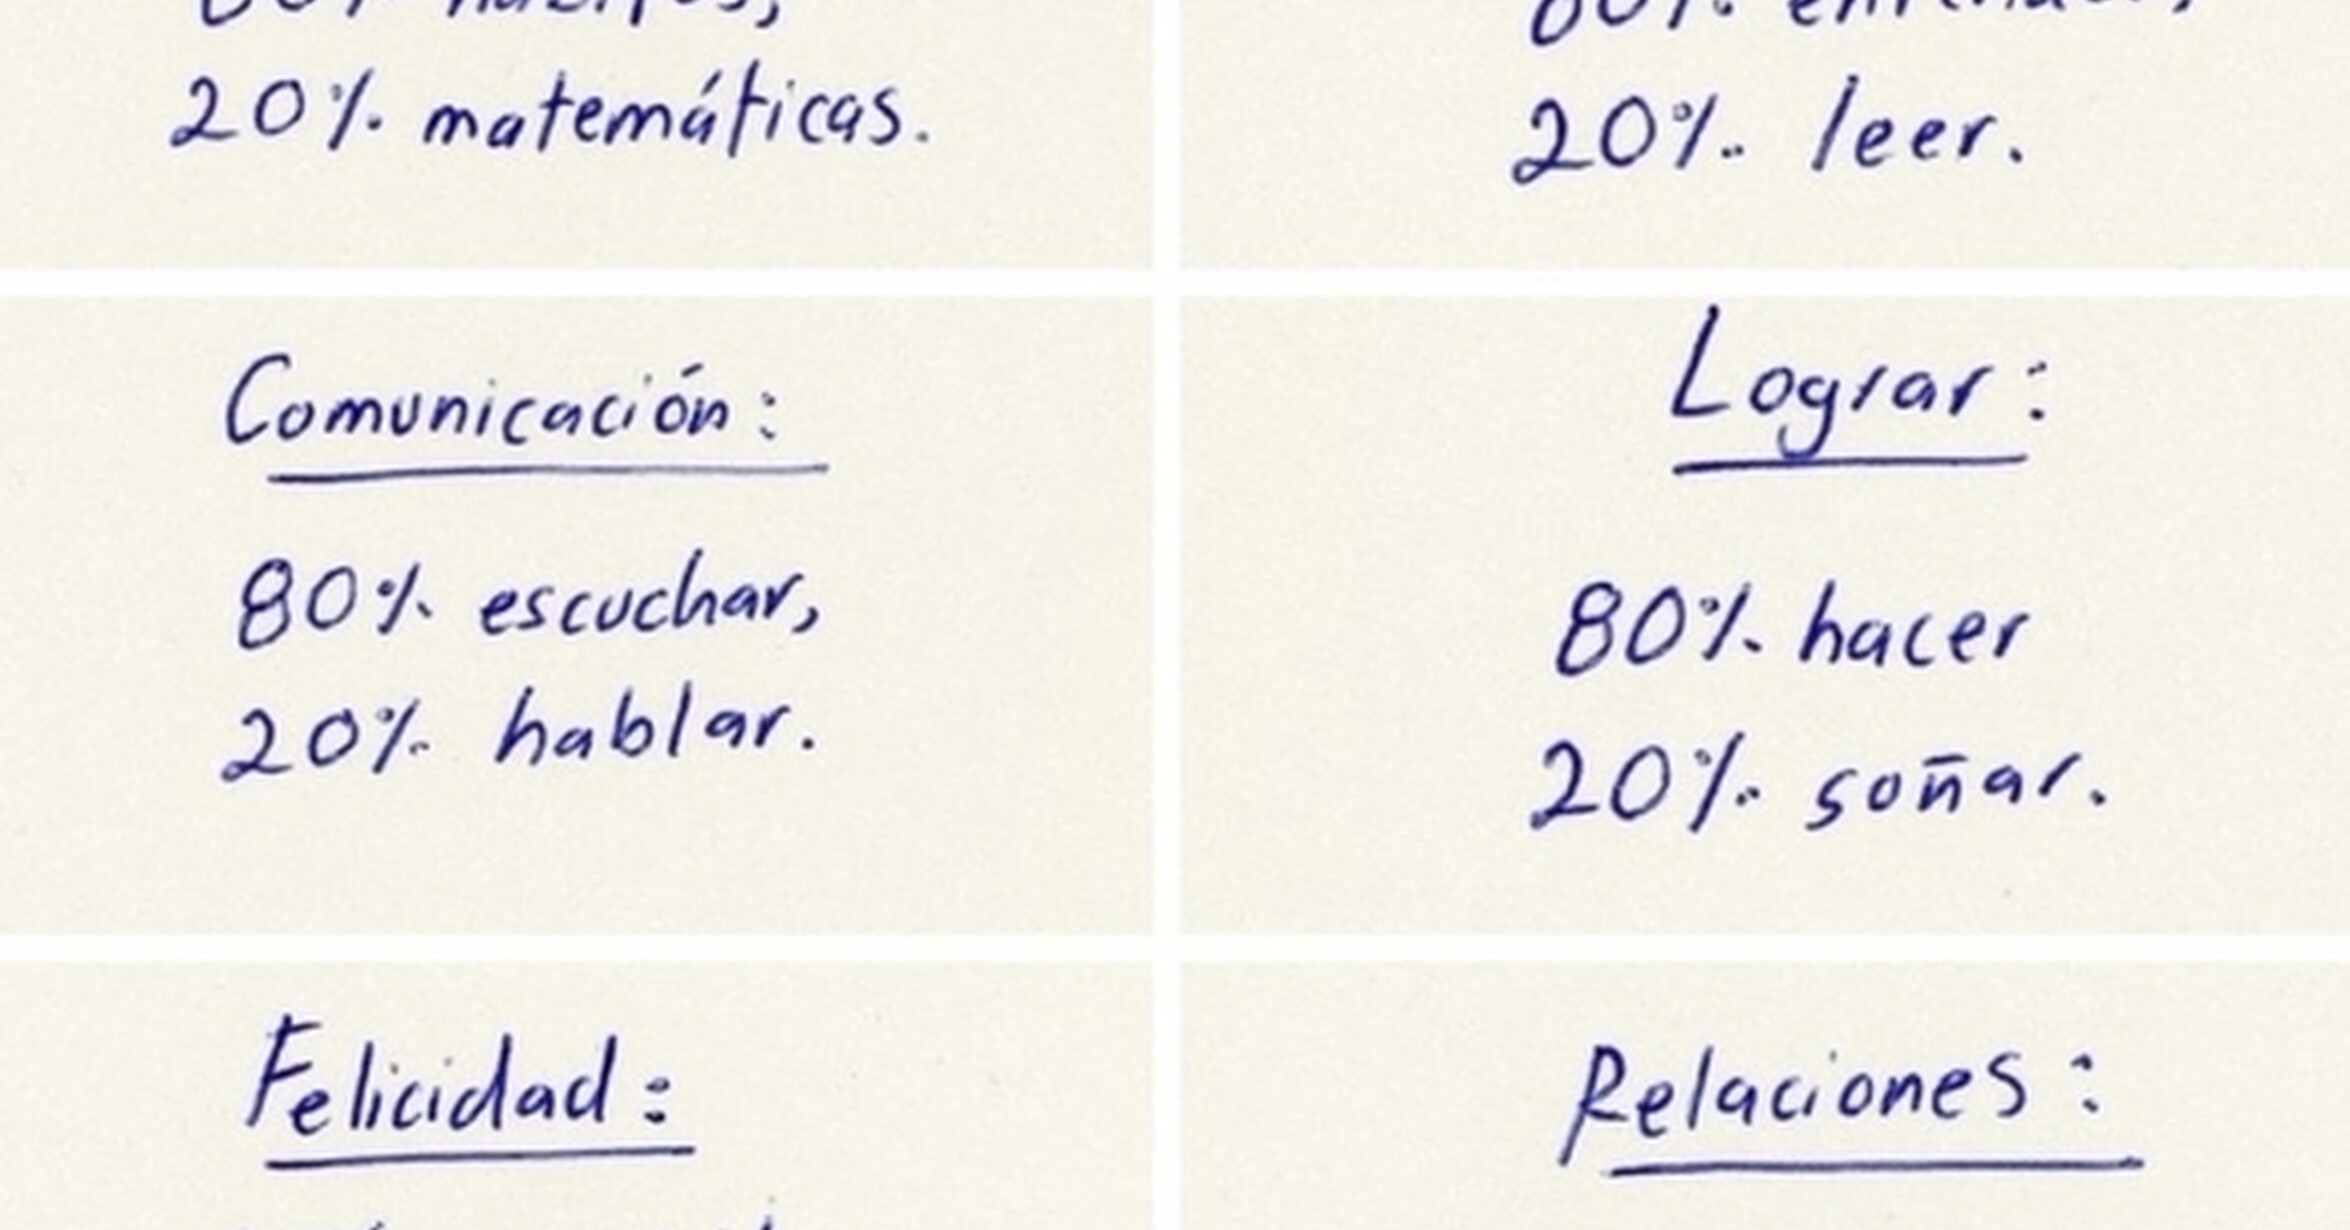 80% hábitos,
20% matemáticas.
20% leer.
Comunicación:
80% escuchar,
20% hablar.
Lograr:
80% hacer
20% soñar.
Felicidad:
Relaciones: